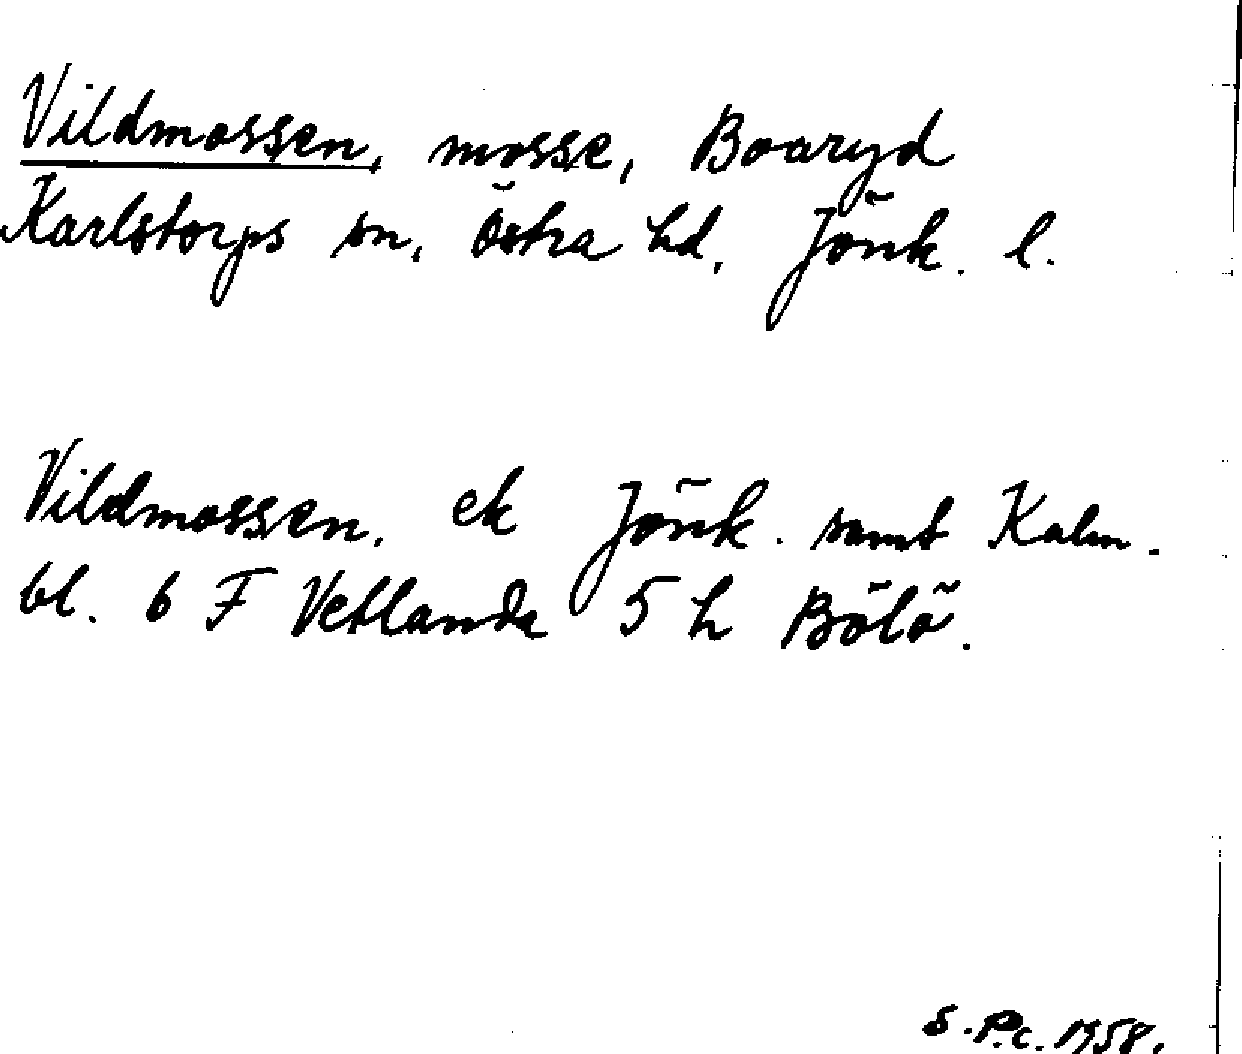 Vildmossen, mosse, Boaryd
Karlstorps sn, Östra hd, Jönk. l.
Vildmossen. ek Jönk. samt Kalm.
bl. 6 F Vetlanda 5 h Bölö.
S.P.c. 1958.